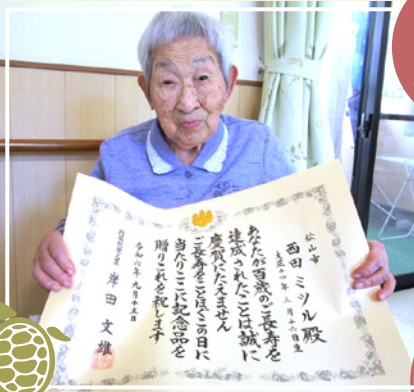 松山市
西田ミツル殿
月十六日生
あなたが百歳のご長寿を
達成されたことは誠に
慶賀にたえません
ご長寿をことほぐこの日に
当たりここに記念品を
贈りこれを祝します
令和六年九月十五日
内閣総理大臣 岸田文雄